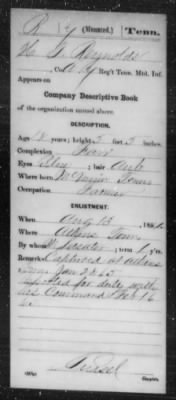 R 7 (Mounted.) Tenn.
H. G. Reynolds
Co. A, 7 Reg't Tenn. Mtd. Inf.
Appears on
Company Descriptive Book
of the organization named above.
DESCRIPTION.
Age 18 years; height 5 feet 3 inches.
Complexion Fair
Eyes Blue; hair Aub
Where born McMinn Tenn
Occupation Farmer
ENLISTMENT.
When Aug 13, 186
Where Athens Tenn
By whom; term 1 y'rs.
Remarks: Captured at Athens
Tenn Jan 28 65
for duty with
his Command Feb 16
65
Copyist.